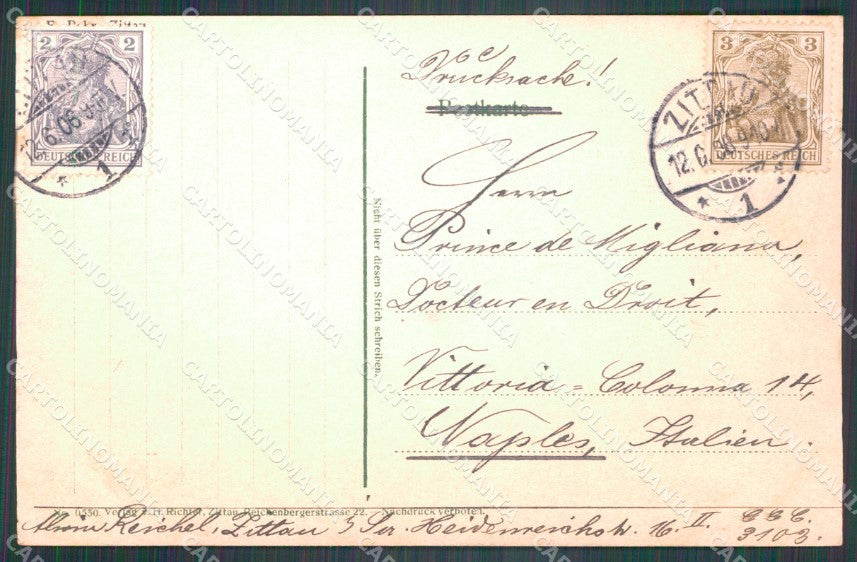 2 2
DEUTSCHES REICH
6.06
1
Drucksache!
Postkarte
3 3
DEUTSCHES REICH
ZITTAU
12.6.06 9-10 V
1
Herrn
Prince de Migliano,
Docteur en Droit,
Vittoria = Colonna 14,
Naples, Italien.
Nicht über diesen Strich schreiben.
No. 0350. Verlag F. H. Richter, Zittau Reichenbergerstrasse 22. — Nachdruck verboten.
Alwin Reichel, Zittau i/Sa. Heidenreichstr. 16. II.
3103.
CARTOLINOMANIA